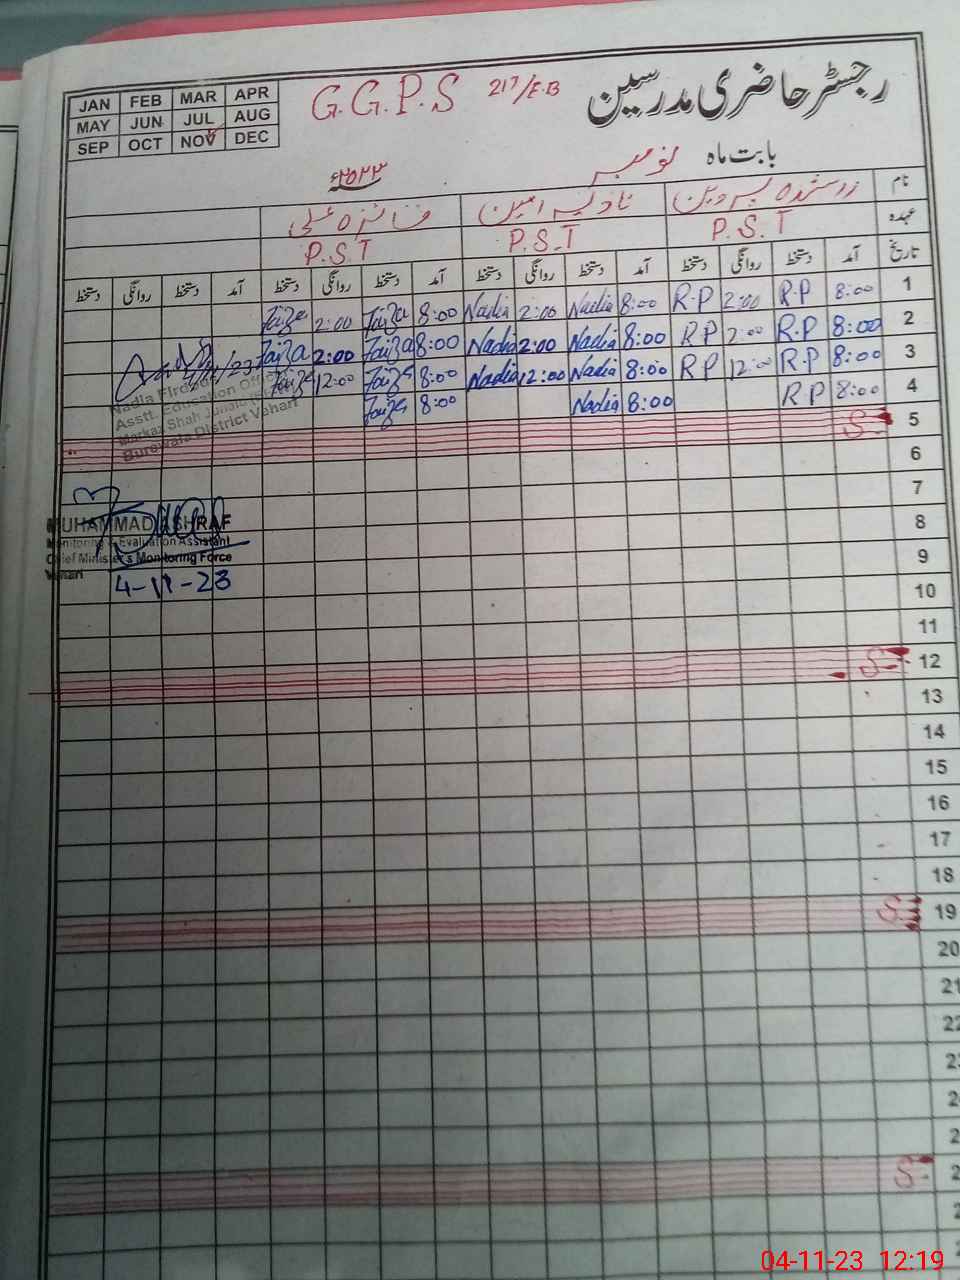 JAN FEB MAR APR
MAY JUN JUL AUG
SEP OCT NOV DEC
G.G.P.S 217/E.B
رجسٹر حاضری مدرسین
بابت ماہ نومبر
۲۰۲۳ء
نام پروین نادیہ امین فائزہ علی
عہدہ P.S.T P.S.T P.S.T
تاریخ آمد دستخط روانگی دستخط آمد دستخط روانگی دستخط آمد دستخط روانگی دستخط آمد دستخط روانگی دستخط
1 8:00 R.P 2:00 R.P 8:00 Nadia 2:00 Nadia 8:00 Faiza 2:00 Faiza
2 8:00 R.P 2:00 R.P 8:00 Nadia 2:00 Nadia 8:00 Faiza 2:00 Faiza
3 8:00 R.P 12:00 R.P 8:00 Nadia 12:00 Nadia 8:00 Faiza 12:00 Faiza
4 8:00 R.P 8:00 Nadia 8:00 Faiza
Nadia Firdous
Asstt. Education Officer
Markaz Shah Junaid
Burewala District Vehari
5 S
6
7
8
MUHAMMAD ASHRAF
Monitoring & Evaluation Assistant
Chief Minister's Monitoring Force
Vehari
4-11-23
9
10
11
12 S
13
14
15
16
17
18
19 S
20
21
22
S
04-11-23 12:19